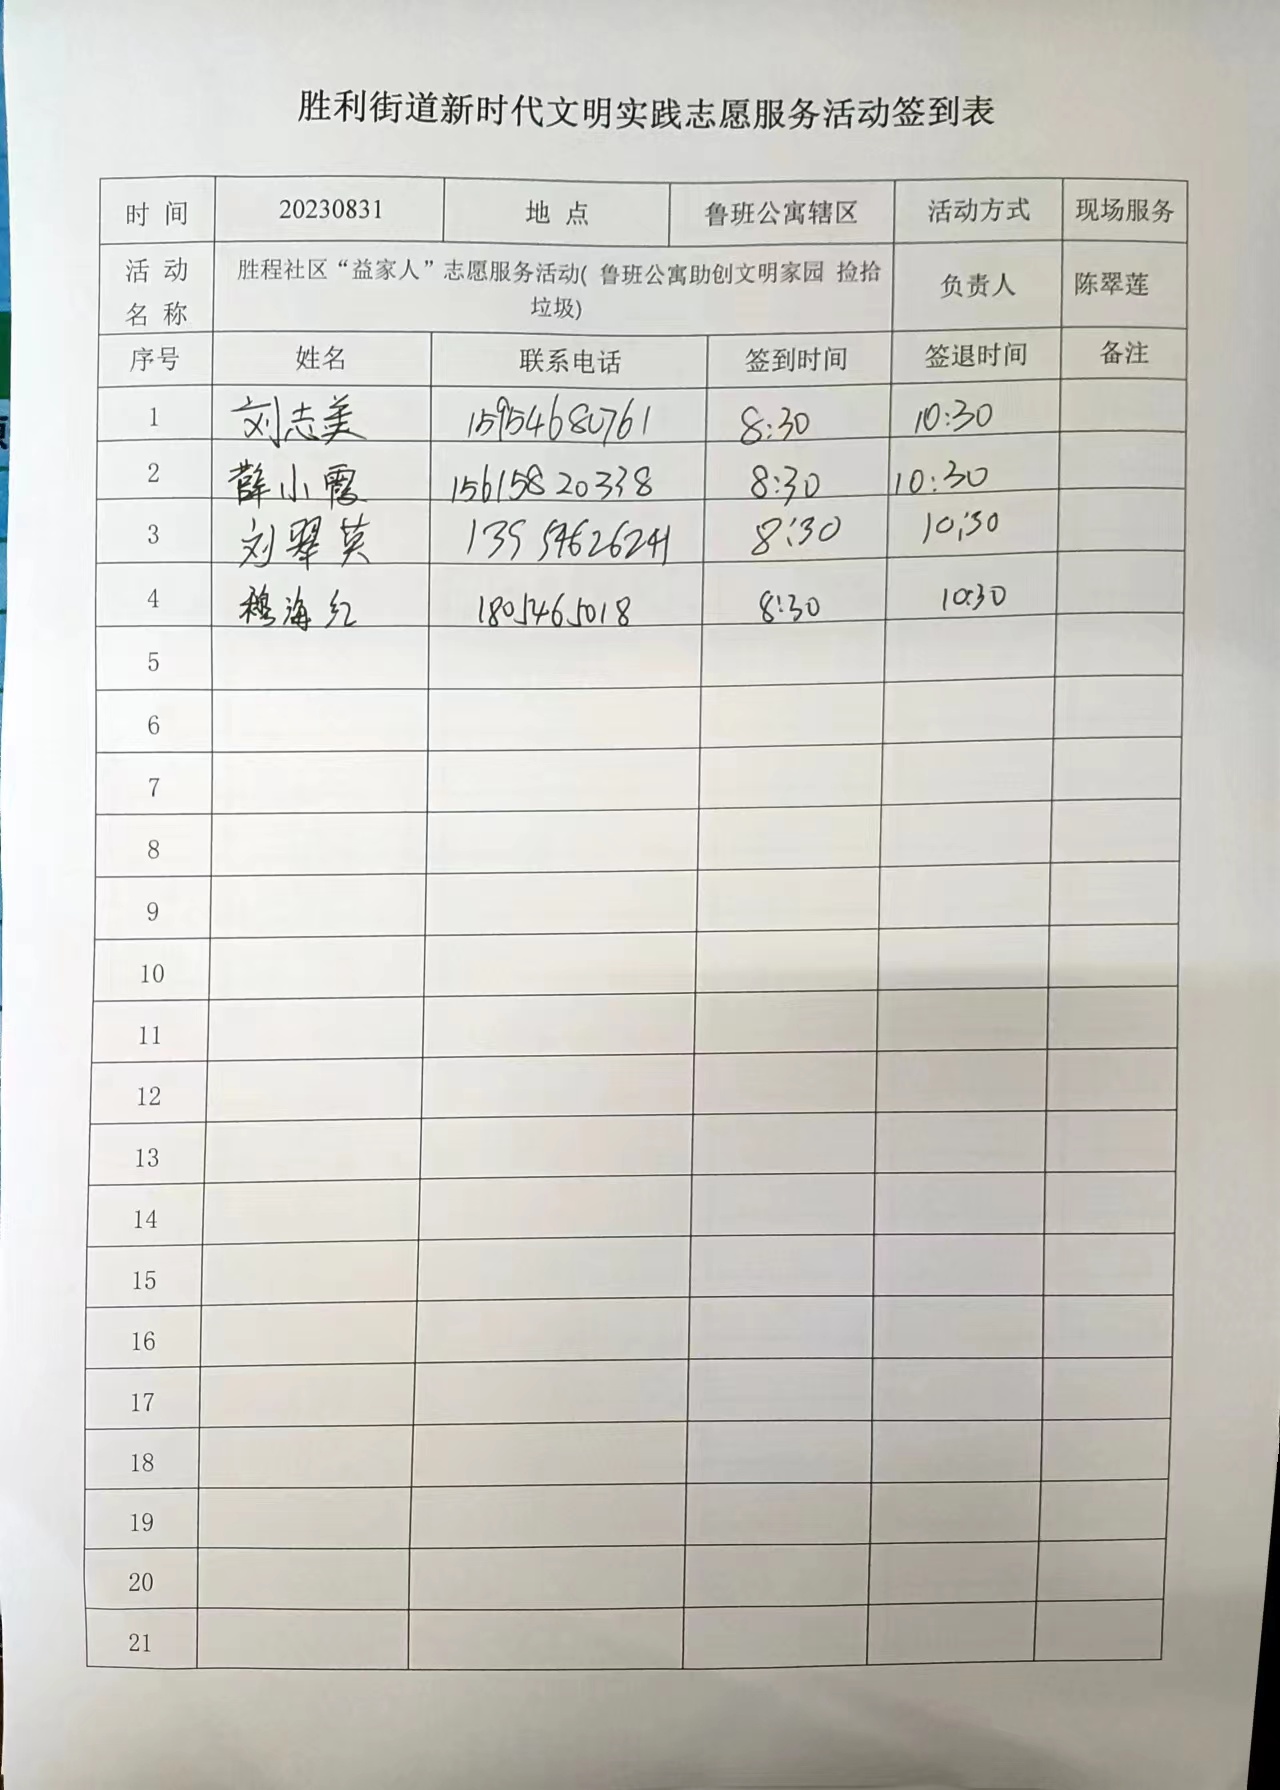 胜利街道新时代文明实践志愿服务活动签到表
时 间 20230831 地 点 鲁班公寓辖区 活动方式 现场服务
活 动 名 称 胜程社区“益家人”志愿服务活动( 鲁班公寓助创文明家园 捡拾
垃圾) 负责人 陈翠莲
序号 姓名 联系电话 签到时间 签退时间 备注
1 刘志美 15954680761 8:30 10:30
2 薛小霞 15615820338 8:30 10:30
3 刘翠英 13954626241 8:30 10:30
4 穆海红 1805465018 8:30 10:30
5
6
7
8
9
10
11
12
13
14
15
16
17
18
19
20
21